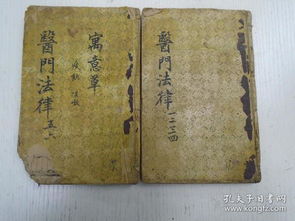 醫門法律 一二三四
寓意草
醫門法律 五六
孔夫子旧书网